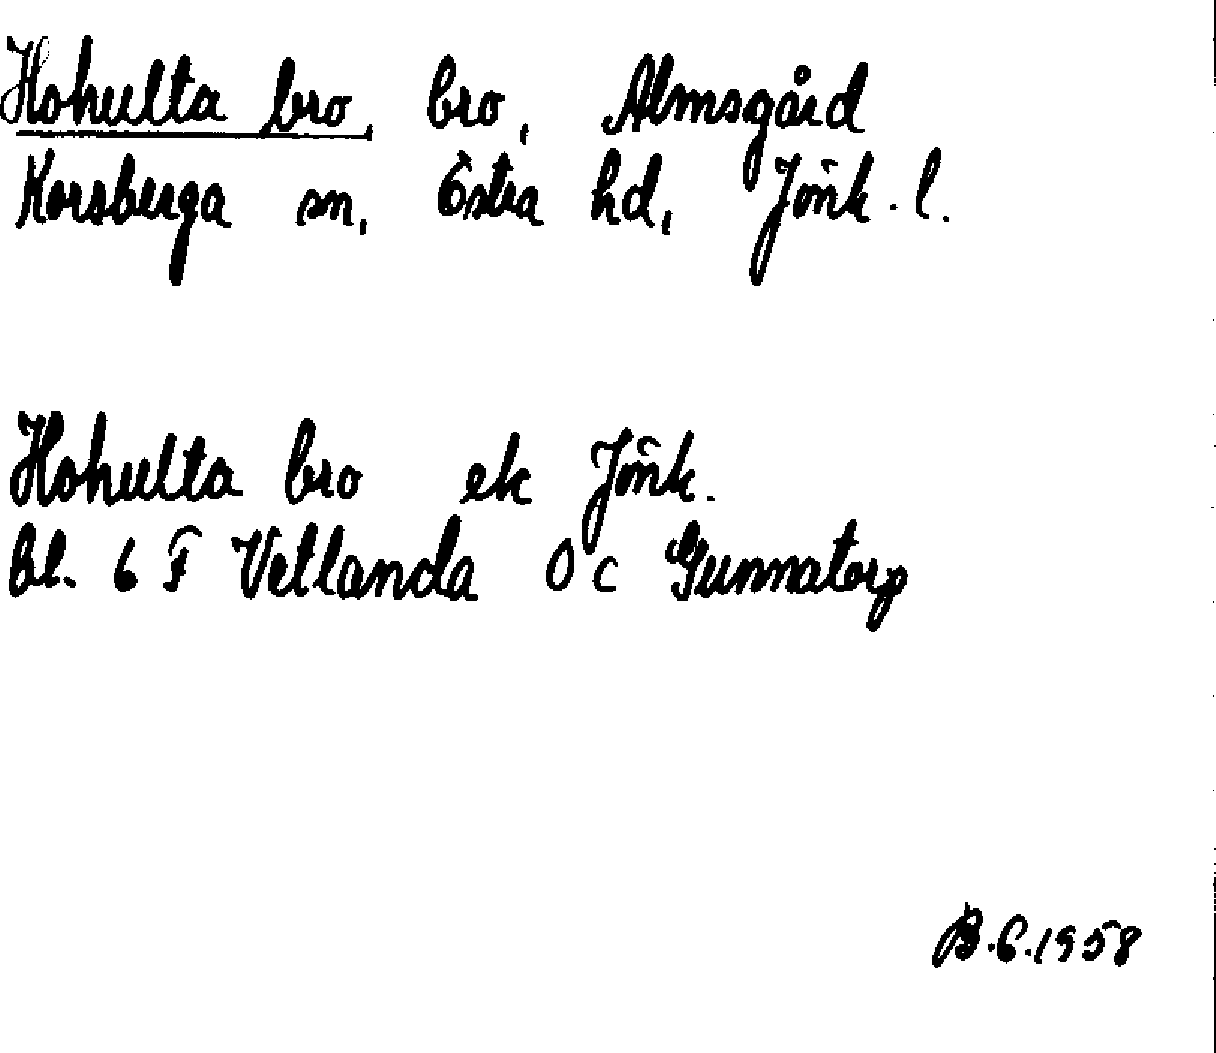 Hohulta bro, bro, Almsgård
Korsberga sn, Östra hd, Jönk. l.
Hohulta bro ek Jönk.
bl. 6 F Vetlanda 0 c Gunnatorp
B.C.1958